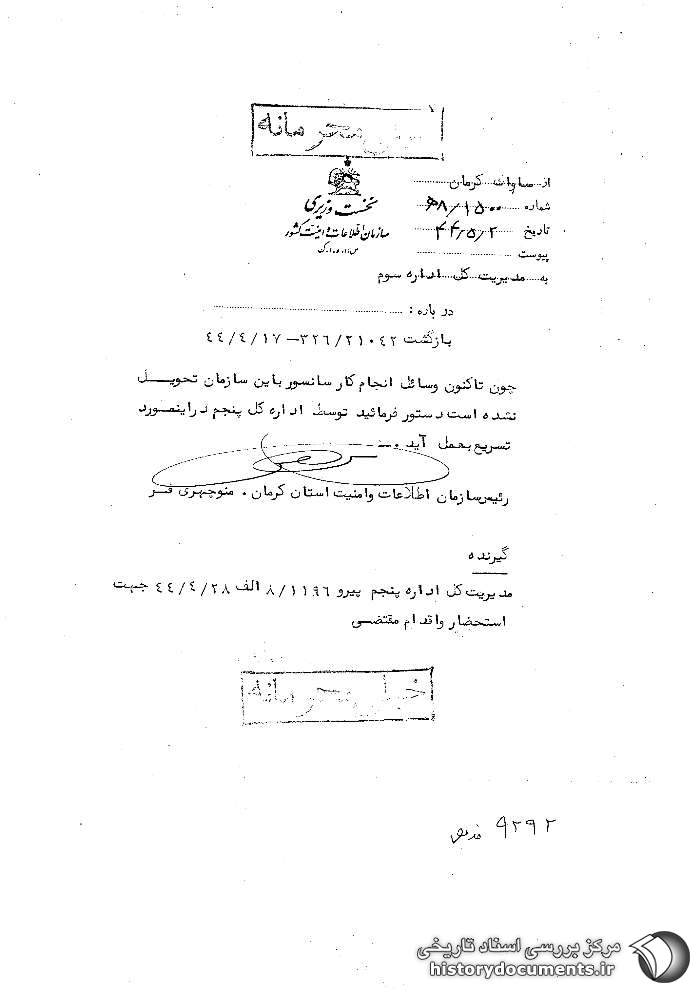 خیلی محرمانه
از ساواک کرمان
شماره ۸/۱۵۰۰ه‍
تاریخ ۴۴/۵/۲
پیوست
نخست وزیری
سازمان اطلاعات و امنیت کشور
س.ا.و.ا.ک
به مدیریت کل اداره سوم
در باره :
بازگشت ۳۲۶/۲۱۰۴۲-۴۴/۴/۱۷
چون تاکنون وسائل انجام کار سانسور باین سازمان تحویل
نشده است دستور فرمائید توسط اداره کل پنجم دراینمورد
تسریع بعمل آید .
رئیس سازمان اطلاعات وامنیت استان کرمان . منوچهری فر
گیرنده
مدیریت کل اداره پنجم پیرو ۸/۱۱۹۶ الف ۴۴/۴/۲۸ جهت
استحضار واقدام مقتضی
خیلی محرمانه
۹۲۹۲
مرکز بررسی اسناد تاریخی
historydocuments.ir